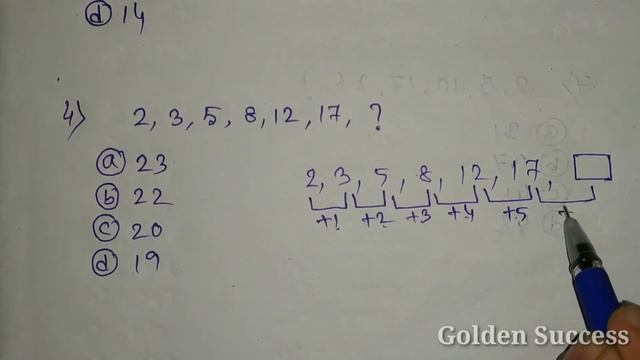 ⓓ 14
4) 2, 3, 5, 8, 12, 17, ?
ⓐ 23
ⓑ 22
ⓒ 20
ⓓ 19
2, 3, 5, 8, 12, 17,
+1 +2 +3 +4 +5
Golden Success